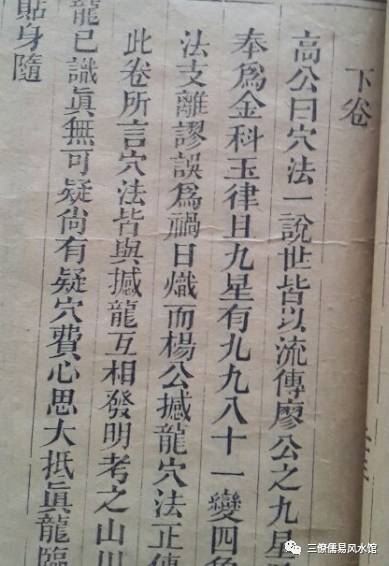 下卷
高公曰穴法一說世皆以流傳廖公之九星
奉爲金科玉律且九星有九九八十一變四
法支離謬誤爲禍日熾而楊公撼龍穴法正傳
此卷所言穴法皆與撼龍互相發明考之山川
龍已識眞無可疑尚有疑穴費心思大抵眞龍臨
貼身隨
三僚儒易风水馆